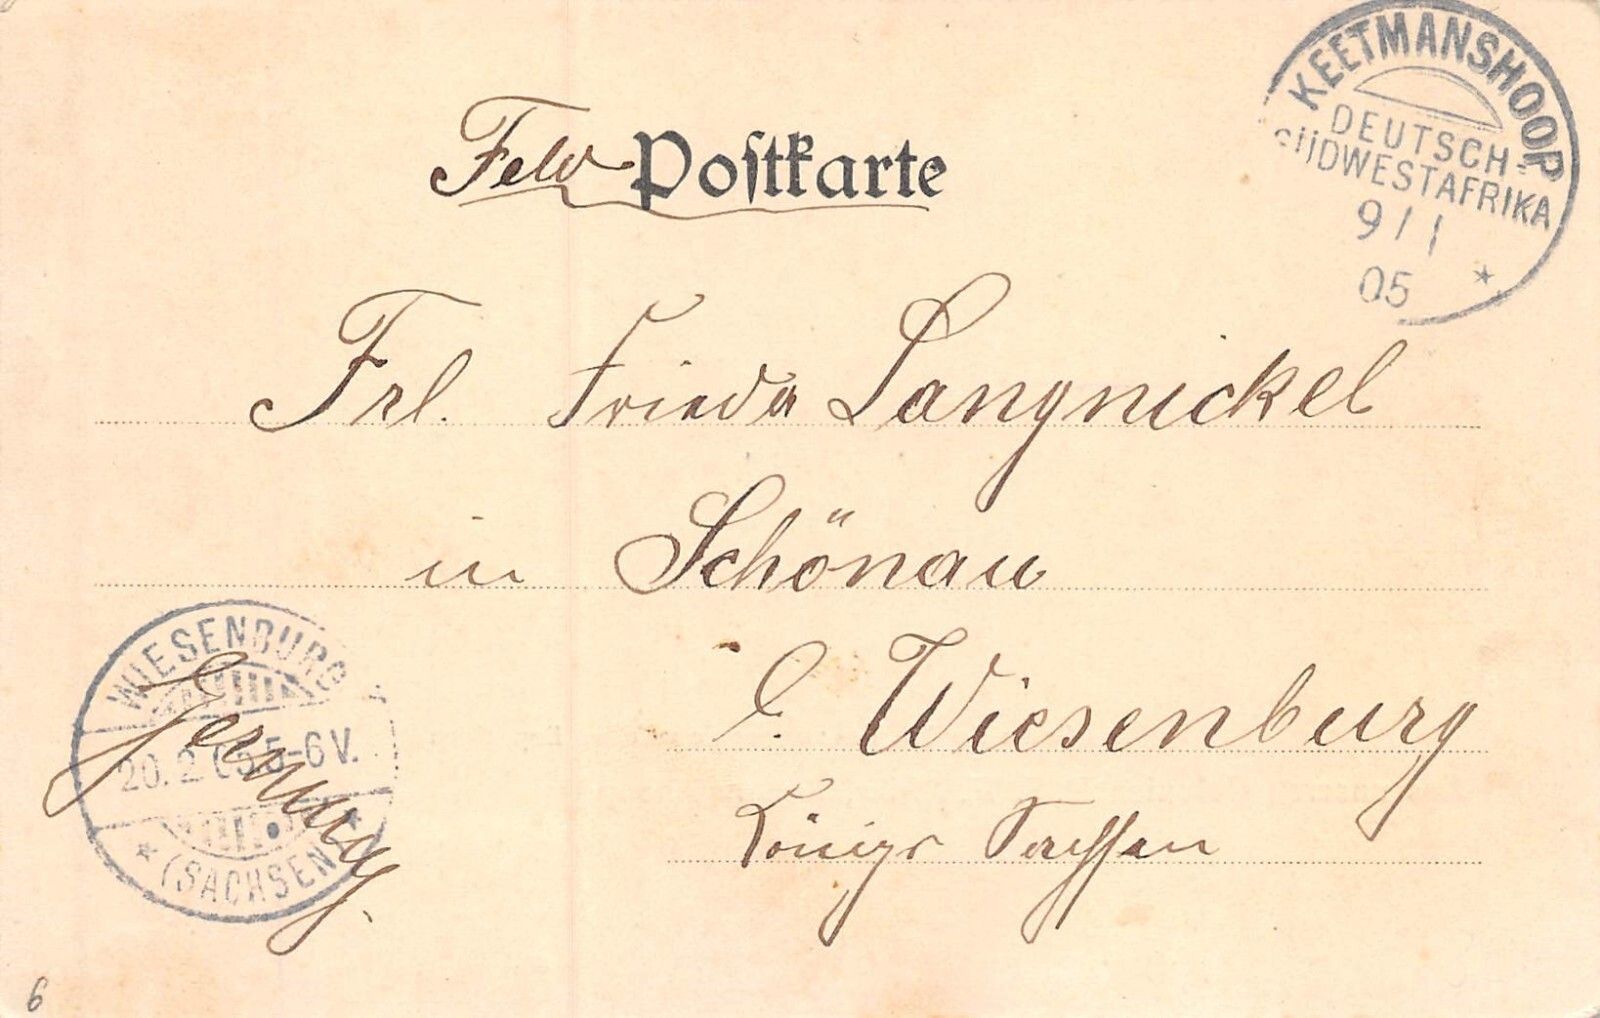 Feld Postkarte
KEETMANSHOOP
DEUTSCH-
SÜDWESTAFRIKA
9/1
05 *
Frl. Frieda Langnickel
in Schönau
b. Wiesenburg
Königr Sachsen
WIESENBURG
20.2.05 5-6V.
* (SACHSEN) *
Germany.
6